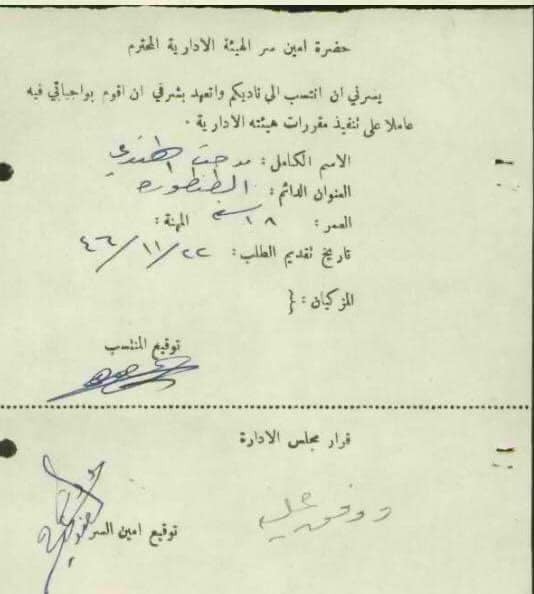 حضرة امين سر الهيئة الادارية المحترم
يسرني ان انتسب الى ناديكم واتعهد بشرفي ان اقوم بواجباتي فيه
عاملا على تنفيذ مقررات هيئته الادارية .
الاسم الكامل : مدحت الهندي
العنوان الدائم : الطنطوره
العمر : ١٨ سنه المهنة :
تاريخ تقديم الطلب : ٢٢/١١/٤٦
المزكيان : {
توقيع المنتسب
قرار مجلس الادارة
ووفق عليه
توقيع امين السر